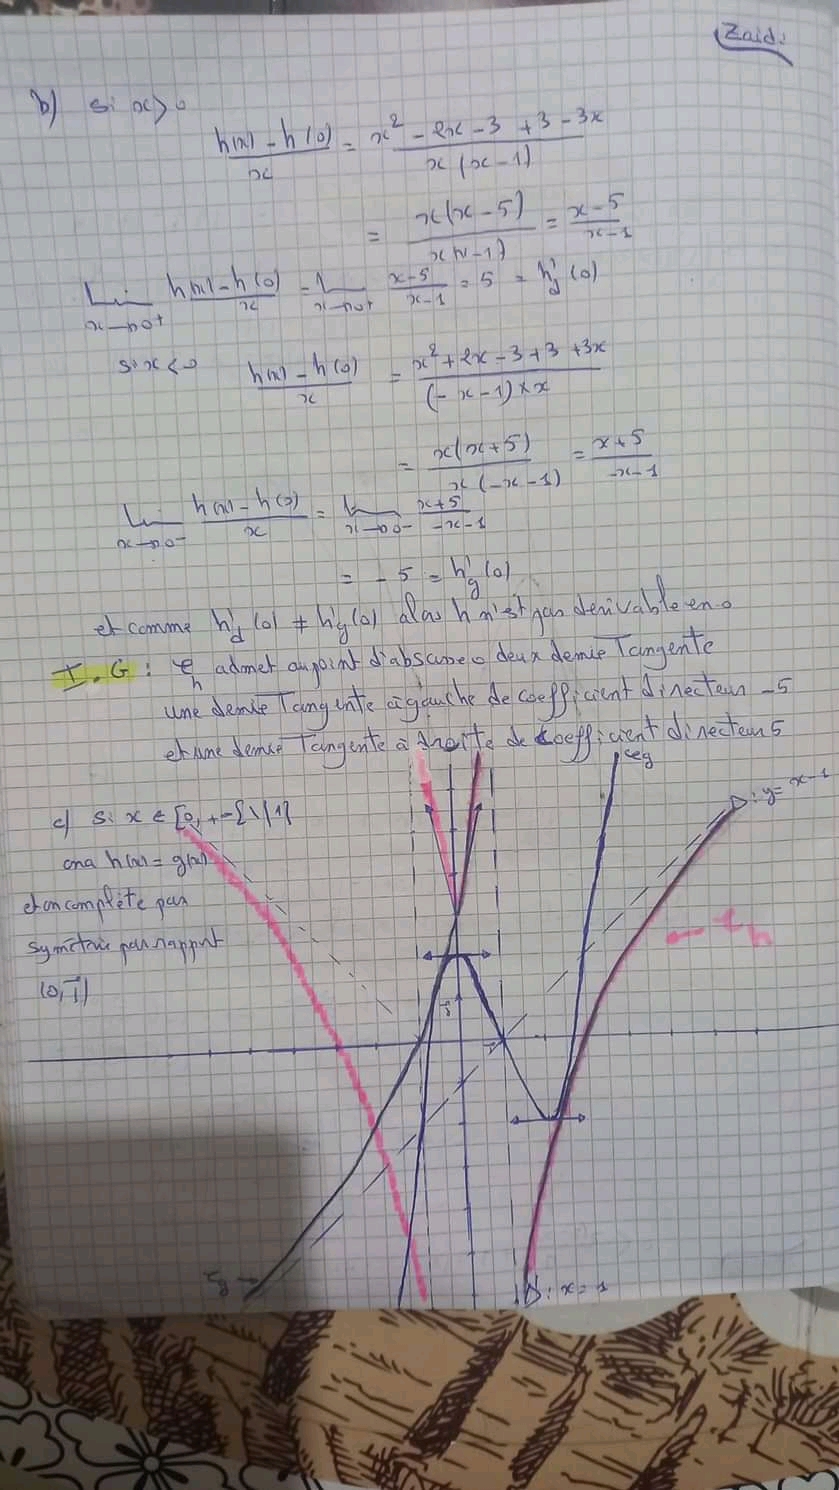 Zaidi
b) si x > 0
h(x) - h(0) / x = x² - 2x - 3 + 3 - 3x / x(x - 1)
= x(x - 5) / x(x - 1) = x - 5 / x - 1
Lim x→0+ h(x) - h(0) / x = Lim x→0+ x - 5 / x - 1 = 5 = h'd(0)
si x < 0 h(x) - h(0) / x = x² + 2x - 3 + 3 + 3x / (-x - 1) × x
= x(x + 5) / x(-x - 1) = x + 5 / -x - 1
Lim x→0- h(x) - h(0) / x = Lim x→0- x + 5 / -x - 1
= -5 = h'g(0)
et comme h'd(0) ≠ h'g(0) alors h n'est pas derivable en 0
I.G : ℰh admet au point d'abscisse 0 deux demie Tangente
une demie Tangente à gauche de coefficient directeur -5
et une demie Tangente à droite de coefficient directeur 5
c) si x ∈ [0, +∞[ \ {1}
on a h(x) = g(x)
et on complète par
symétrie par rapport
(0, j)
Δ: y = x - 1
ℰh
D: x = 1